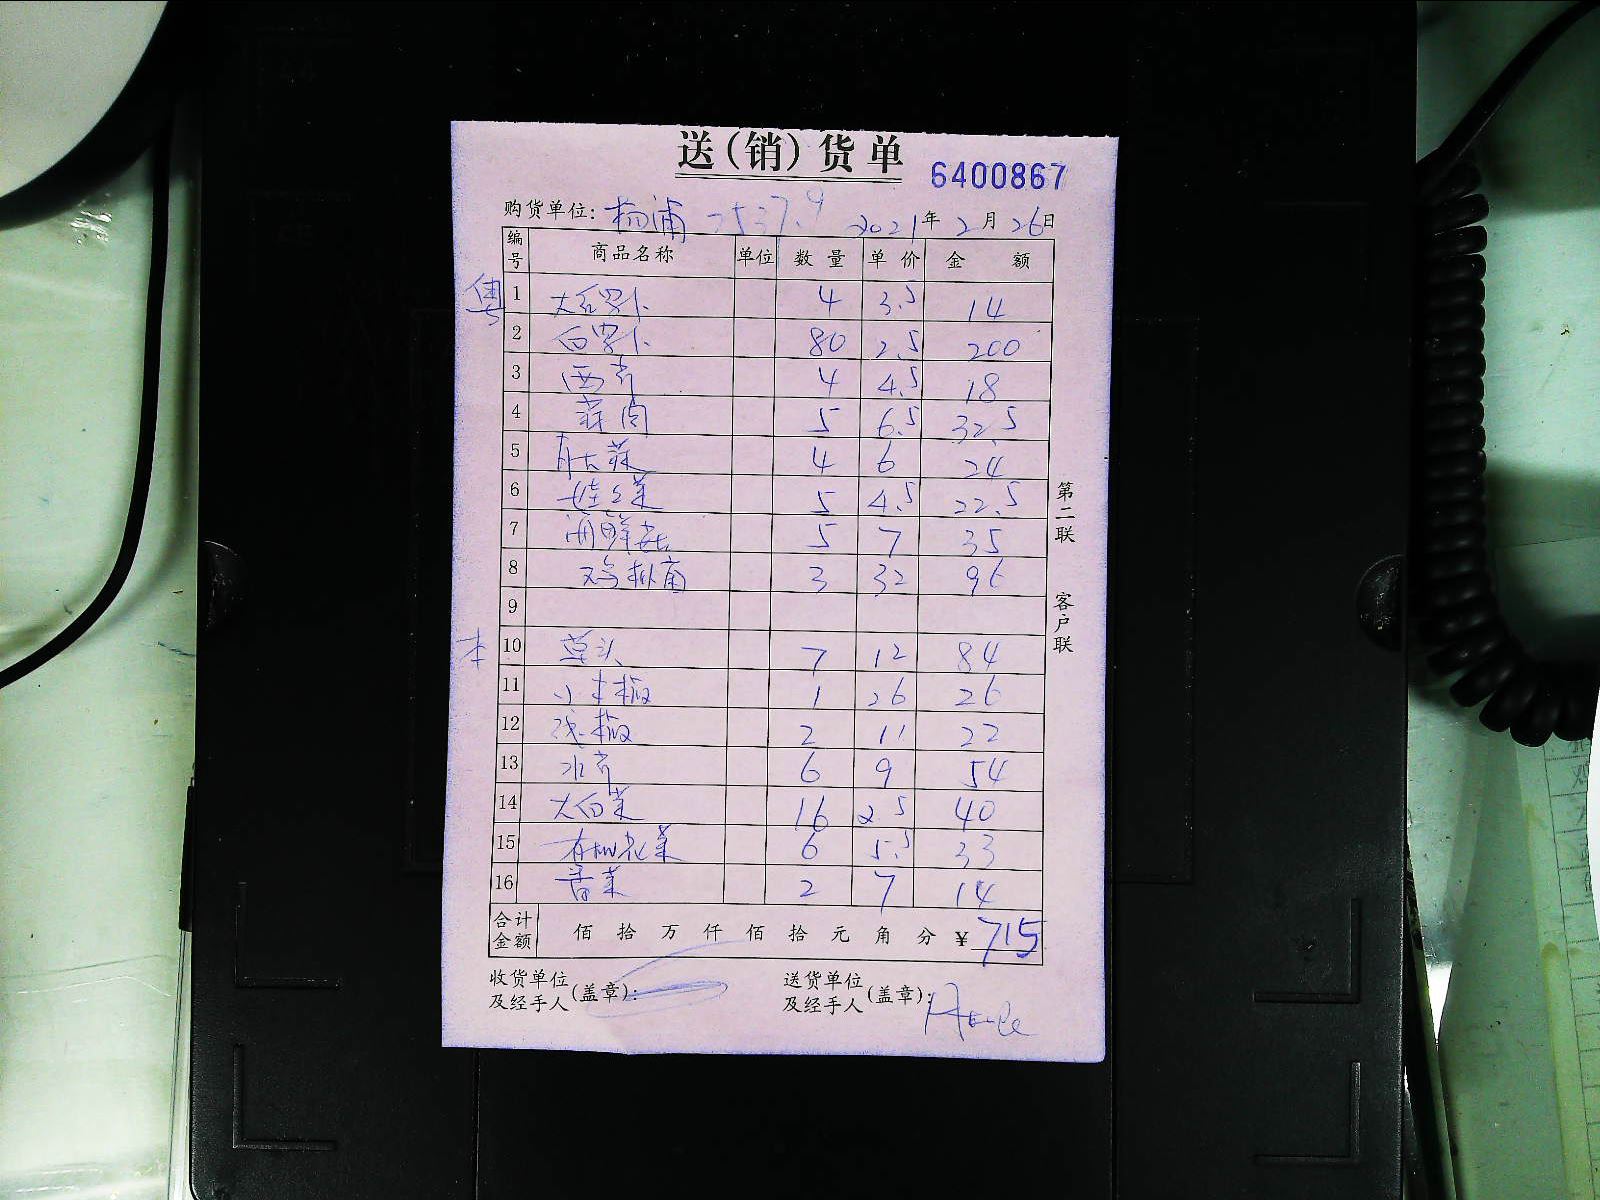 送(销)货单
6400867
购货单位: 杨浦 2537.9 2021年2月26日
编号 商品名称 单位 数量 单价 金额
粤 1 大红萝卜 4 3.5 14
2 白萝卜 80 2.5 200
3 西芹 4 4.5 18
4 蒜肉 5 6.5 32.5
5 4 6 24
6 娃娃菜 5 4.5 22.5
7 海鲜菇 5 7 35
8 鸡枞菌 3 32 96
9
本 10 草头 7 12 84
11 小米椒 1 26 26
12 线椒 2 11 22
13 水芹 6 9 54
14 大白菜 16 2.5 40
15 有机花菜 6 5.5 33
16 香菜 2 7 14
合计金额 佰 拾 万 仟 佰 拾 元 角 分 ¥715
收货单位及经手人(盖章): 送货单位及经手人(盖章):
第二联 客户联